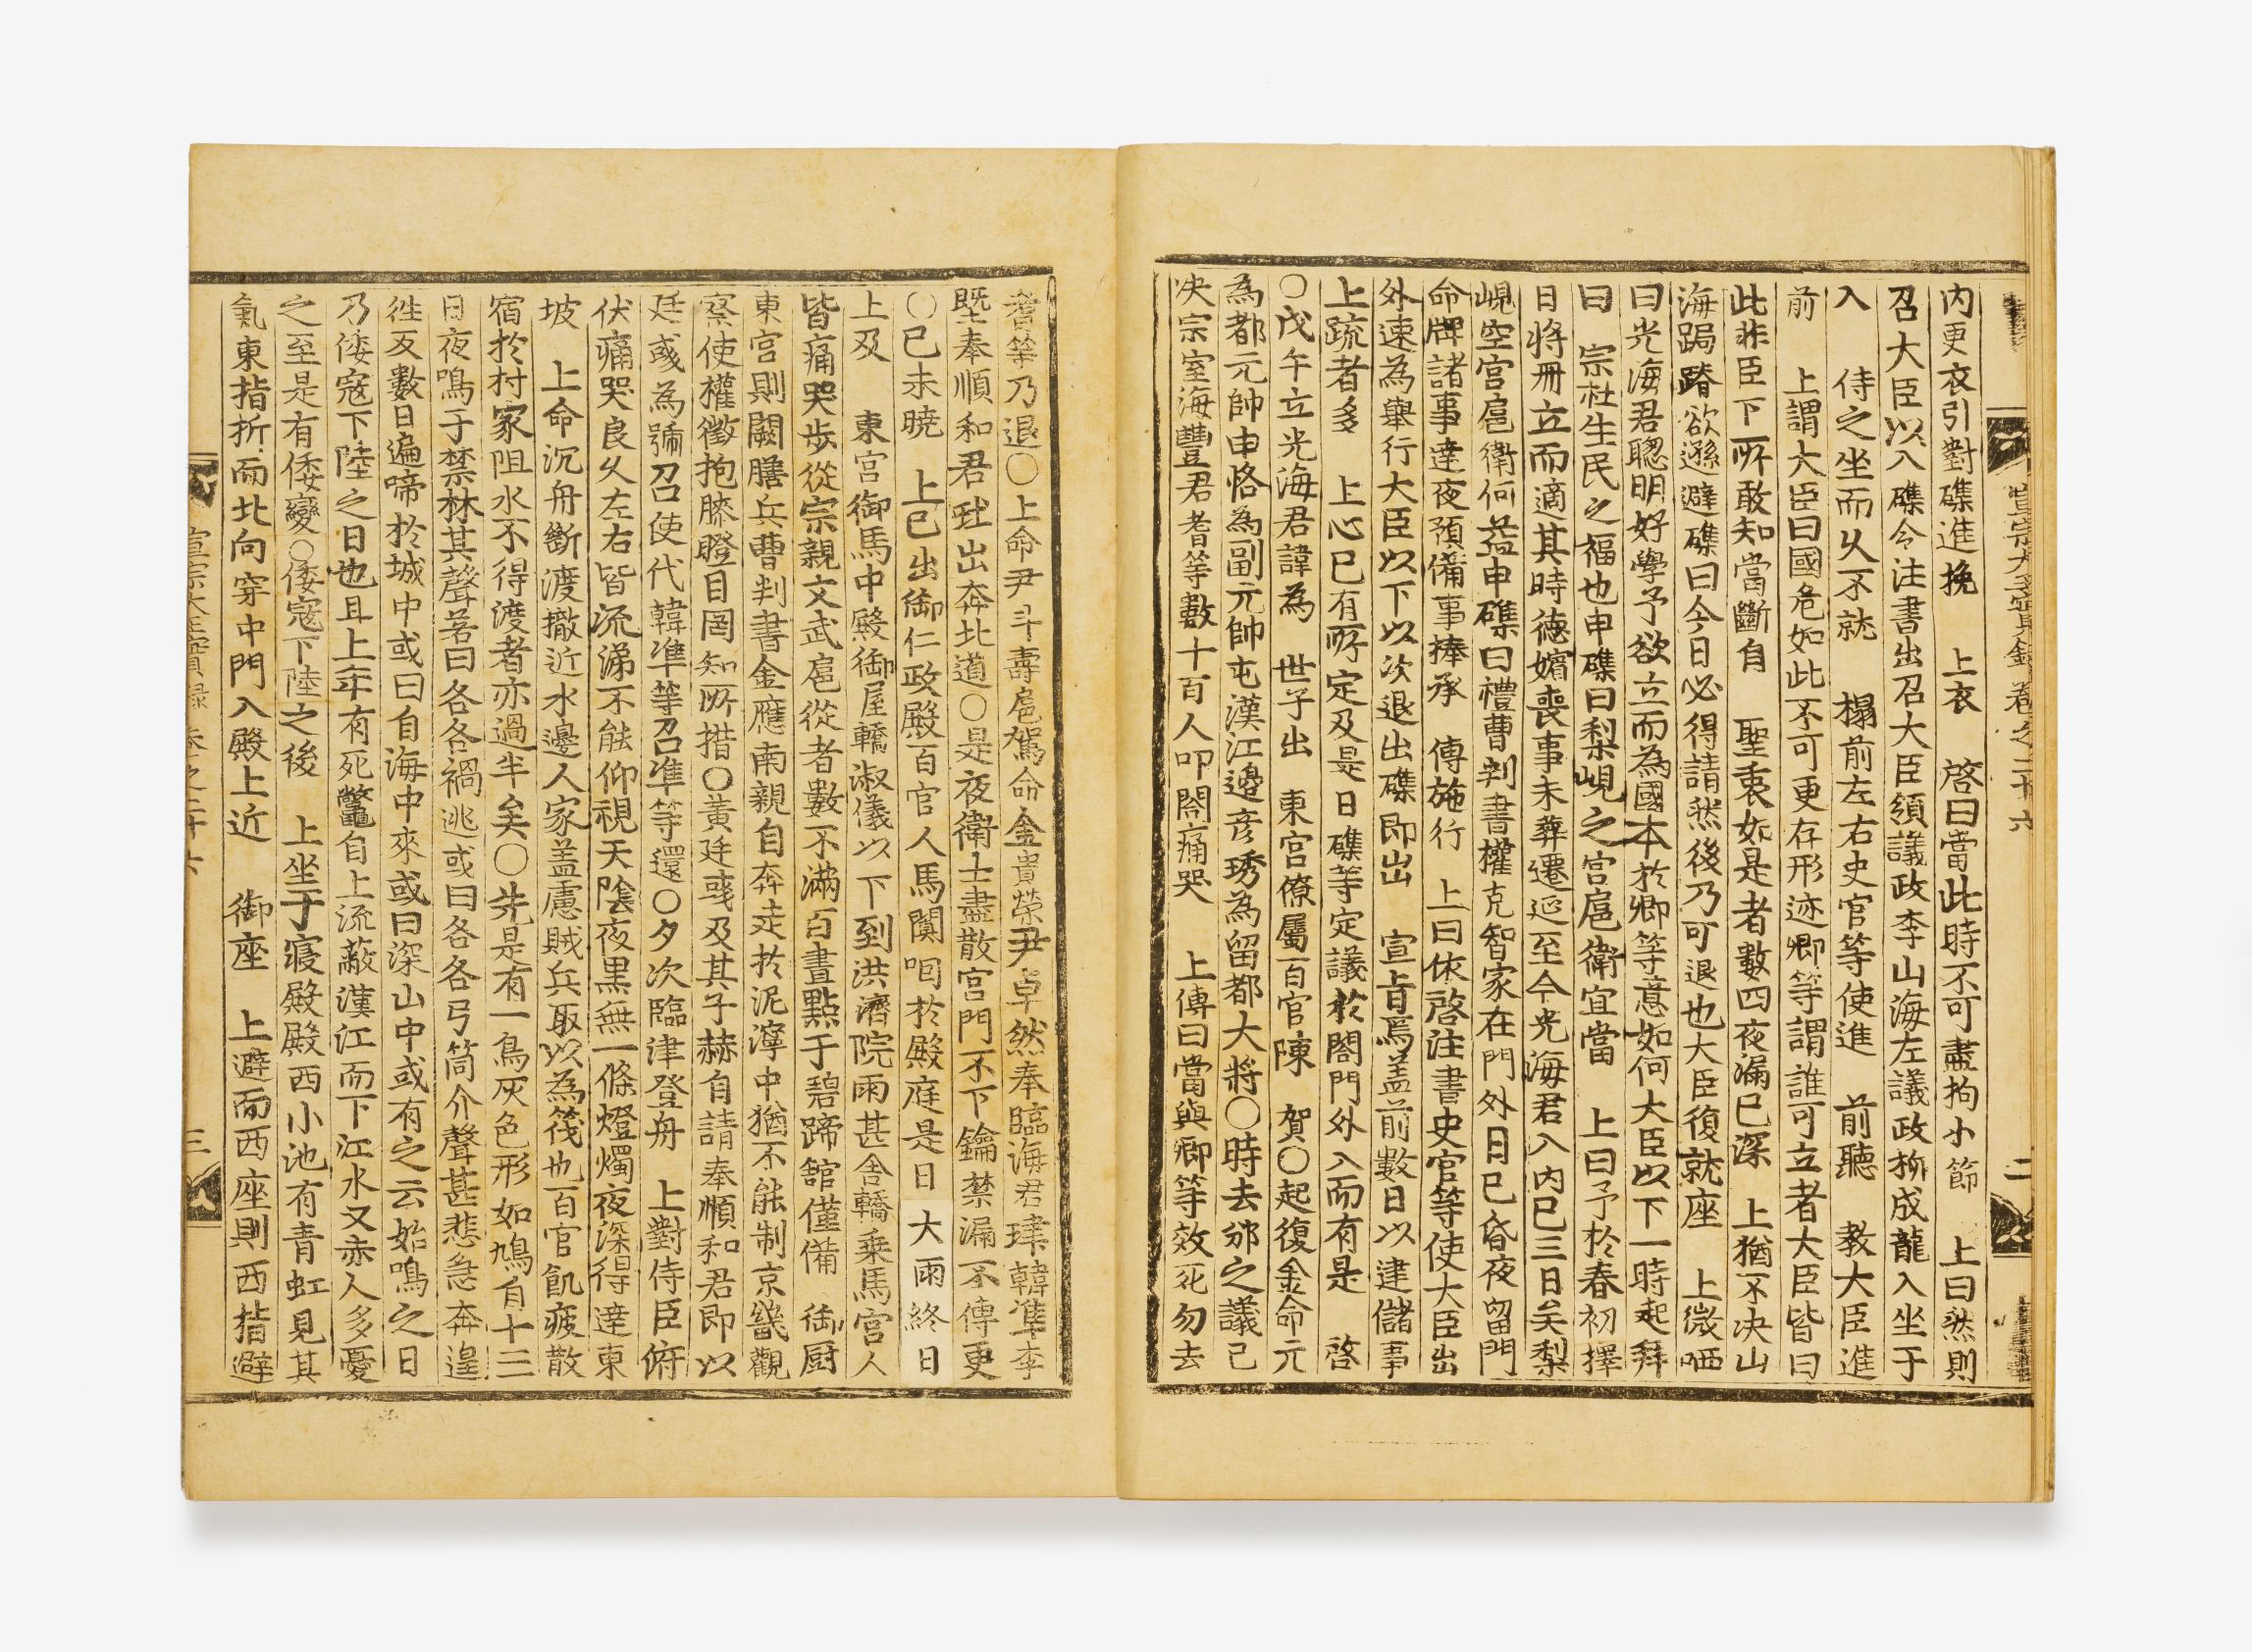 宣宗大王實錄卷之二十六
二
內更衣引對磼進挽　上衣　啓曰當此時不可盡拘小節　上曰然則
召大臣以入磼令注書出召大臣領議政李山海左議政柳成龍入坐于
入　侍之坐而久不就　榻前左右史官等使進　前聽　敎大臣進
前　上謂大臣曰國危如此不可更存形迹卿等謂誰可立者大臣皆曰
此非臣下所敢知當斷自　聖衷如是者數四夜漏已深　上猶不决山
海跼蹐欲遜避磼曰今日必得請然後乃可退也大臣復就座　上微哂
曰光海君聰明好學予欲立而爲國本於卿等意如何大臣以下一時起拜
曰　宗社生民之福也申磼曰梨峴之宮扈衛宜當　上曰予於春初擇
日將冊立而適其時德嬪喪事未葬遷延至今光海君入內已三日矣梨
峴空宮扈衛何益申磼曰禮曹判書權克智家在門外日已昏夜留門
命牌諸事達夜預備事捧承　傳施行　上曰依啓注書史官等使大臣出
外速爲舉行大臣以下以次退出磼即出　宣旨焉盖前數日以建儲事
上疏者多　上心已有所定及是日磼等定議於閤門外入而有是　啓
○戊午立光海君諱爲　世子出　東宮僚屬百官陳　賀○起復金命元
爲都元帥申恪爲副元帥屯漢江邊彥琇爲留都大將○時去邠之議已
决宗室海豐君耆等數十百人叩閤痛哭　上傳曰當與卿等效死勿去
耆等乃退○上命尹斗壽扈駕命金貴榮尹卓然奉臨海君珒韓準李
塈奉順和君𤣰出奔北道○是夜衛士盡散宮門不下鑰禁漏不傳更
○已未曉　上已出御仁政殿百官人馬闐咽於殿庭是日大雨終日
上及　東宮御馬中殿御屋轎淑儀以下到洪濟院雨甚舍轎乘馬宮人
皆痛哭步從宗親文武扈從者數不滿百晝點于碧蹄舘僅備　御厨
東宮則闕膳兵曹判書金應南親自奔走於泥濘中猶不能制京畿觀
察使權徵抱膝瞪目罔知所措○黃廷彧及其子赫自請奉順和君即以
廷彧爲號召使代韓準等召準等還○夕次臨津登舟　上對侍臣俯
伏痛哭良久左右皆流涕不能仰視天陰夜黑無一條燈燭夜深得達東
坡　上命沉舟斷渡撤近水邊人家盖慮賊兵取以爲筏也百官飢疲散
宿於村家阻水不得渡者亦過半矣○先是有一鳥灰色形如鳩自十三
日夜鳴于禁林其聲若曰各各禍逃或曰各各弓筒介聲甚悲急奔遑
徃返數日遍啼於城中或曰自海中來或曰深山中或有之云始鳴之日
乃倭寇下陸之日也且上年有死鼈自上流蔽漢江而下江水又赤人多憂
之至是有倭變○倭寇下陸之後　上坐于寢殿殿西小池有青虹見其
氣東指折而北向穿中門入殿上近　御座　上避而西座則西指避
宣宗大王實錄卷之二十六
三